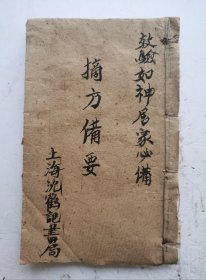 效驗如神居家必備
摘方備要
上海沈鶴記書局